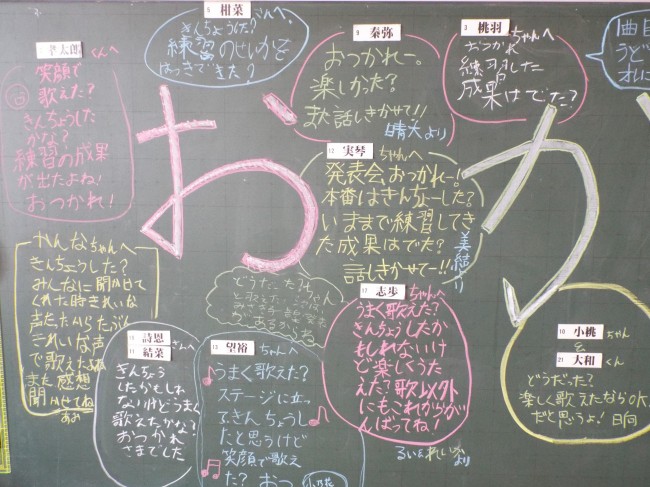 孝太郎くんへ
笑顔で
歌えた?
きんちょうした
かな?
練習の成果
が出たよね!
おつかれ!
5 柑菜さんへ
きんちょうした?
練習のせいかを
はっきできた?
9 泰弥
おつかれー。
楽しかった?
また話しきかせて!!
晴天より
3 桃羽ちゃんへ
おつかれ
練習した
成果はでた?
曲目
うど
オレに
お
か
12 実琴ちゃんへ
発表会おつかれー!
本番はきんちょーした?
いままで練習してき
た成果はでた?
話しきかせてー!!
美結より
かんなちゃんへ
きんちょうした?
みんなに聞かせて
くれた時きれいな
声だったからたぶん
きれいな声
で歌えたよね
また感想
聞かせてね
11 詩恩
11 結菜さんへ
きんちょう
したかもしれ
ないけどうまく
歌えたかな?
おつかれ
さまでした
13 望裕ちゃんへ
うまく歌えた?
ステージに立っ
てきんちょうし
たと思うけど
笑顔で歌え
た?おつ
小乃花
17 志歩ちゃんへ
うまく歌えた?
きんちょうしたか
もしれないけ
ど楽しくうた
えた?歌以外
にもこれからがん
ばってね!
るい&れいかより
10 小桃ちゃん
&
21 大和くん
どうだった?
楽しく歌えたならOK
だと思うよ!日向